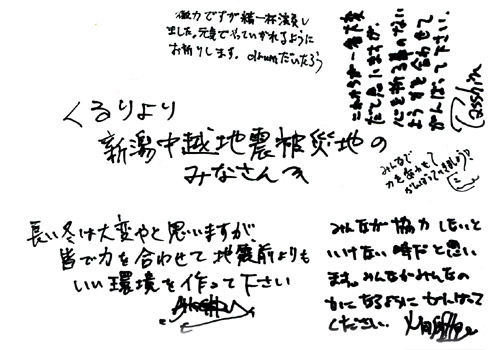 微力ですが精一杯演奏し
ました。元気でやっていかれるように
お祈りします。drumだいたろう
これからが一番大変
だと思いますが、
心を折る事のない
よう力を合わせて
がんばって下さい。
Tasshin
くるりより
新潟中越地震被災地の
みなさんへ
みんなで
力をあわせて
がんばっていきましょう!
長い冬は大変やと思いますが、
皆で力を合わせて地震前よりも
いい環境を作って下さい
みんなが協力しないと
いけない時だと思い
ます。みんながみんなの
力になるようにがんばって
ください。